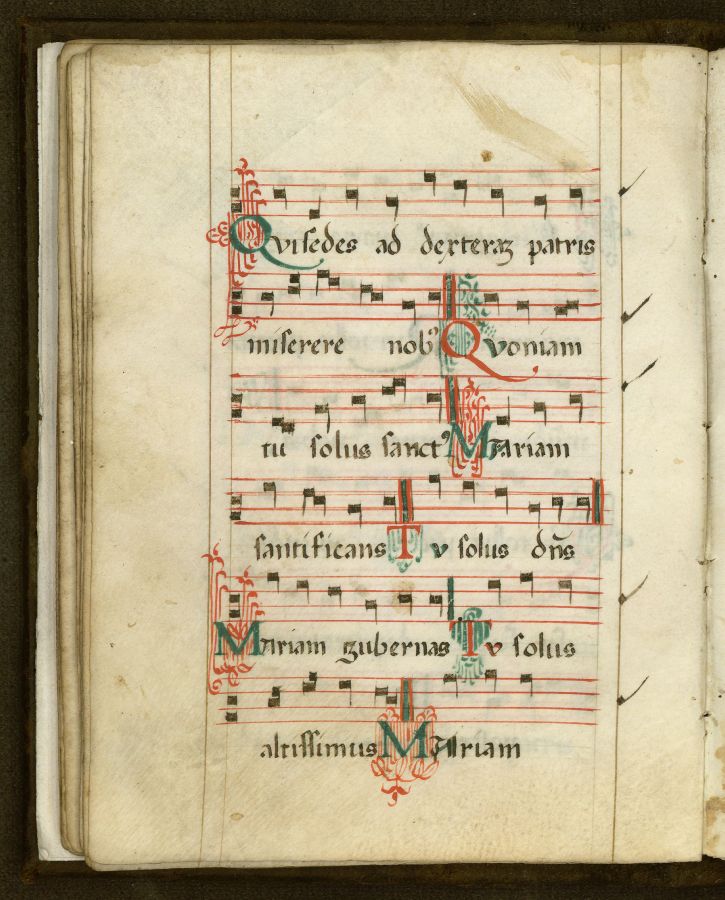 Qvi sedes ad dexteraꝫ patris
miserere nobꝰ Qvoniam
tu solus sanctꝰ Mariam
santificans Tv solus dn̄s
Mariam gubernas Tv solus
altissimus Mariam